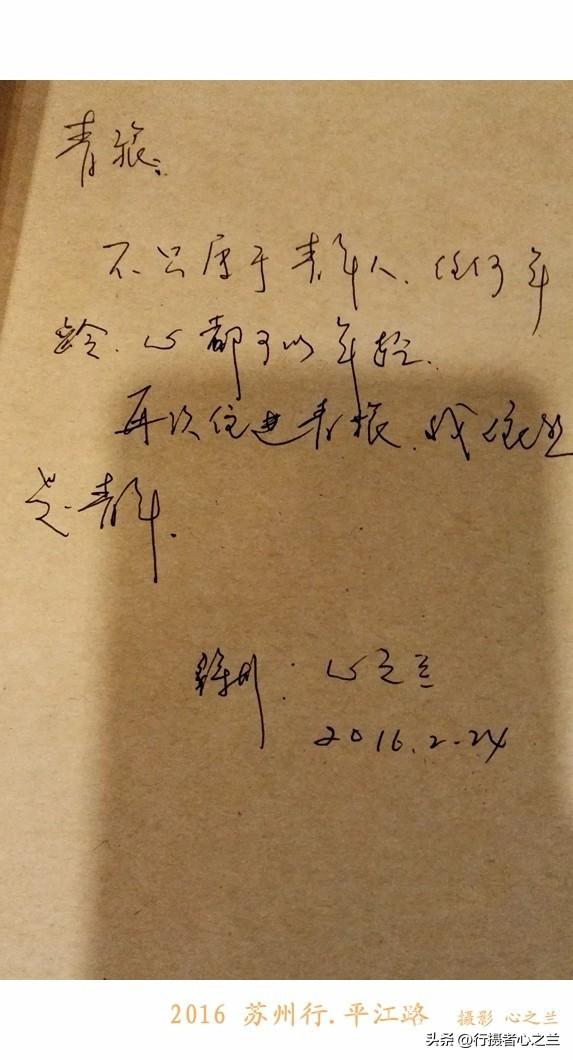 青旅:
不只属于青年人.任何年
龄.心都可以年轻.
再次住进青旅.我依然
是青年.
徐州:心之兰
2016.2.24
2016 苏州行.平江路 摄影 心之兰
头条 @行摄者心之兰